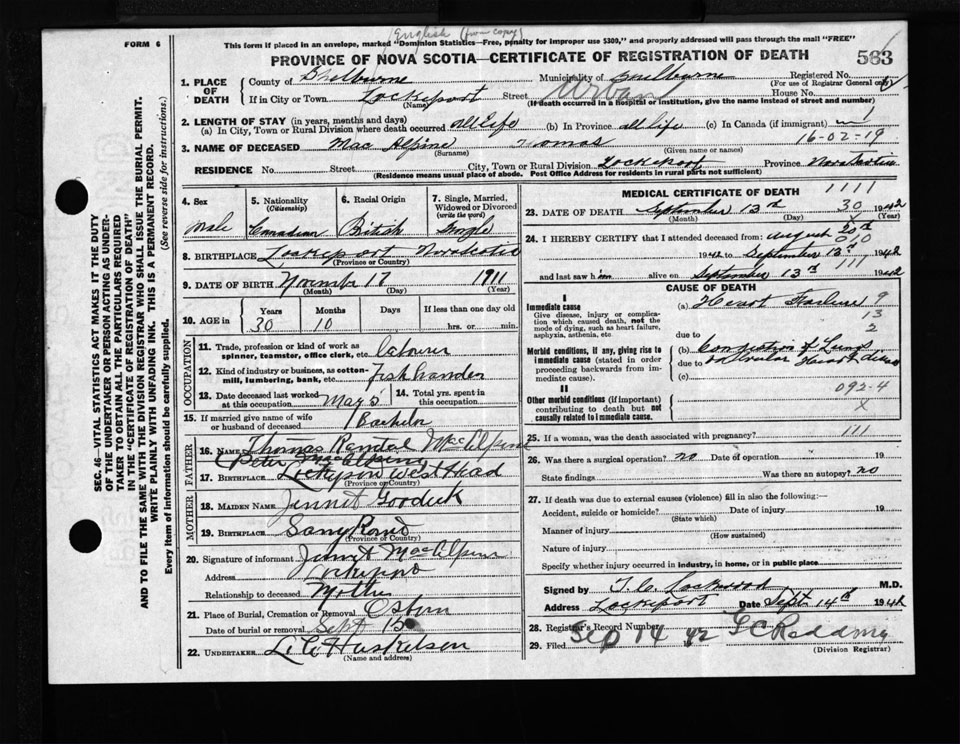 English (from copy)
FORM 6
This form if placed in an envelope, marked "Dominion Statistics—Free, penalty for improper use $300, and properly addressed will pass through the mail "FREE"
PROVINCE OF NOVA SCOTIA—CERTIFICATE OF REGISTRATION OF DEATH
563
1. PLACE OF DEATH
County of Shelburne Municipality of Shelburne Registered No.
(For use of Registrar General only)
If in City or Town Lockeport Street Urban House No.
(Name) (If death occurred in a hospital or institution, give the name instead of street and number)
2. LENGTH OF STAY (in years, months and days)
(a) In City, Town or Rural Division where death occurred All Life (b) In Province all life (c) In Canada (if immigrant)
16-02-19
3. NAME OF DECEASED Mac Alpine Thomas
(Surname) (Given name or names)
RESIDENCE No. Street City, Town or Rural Division Lockeport Province Nova Scotia
(Residence means usual place of abode. Post Office Address for residents in rural parts not sufficient)
SEC. 46—VITAL STATISTICS ACT MAKES IT THE DUTY
OF THE UNDERTAKER OR PERSON ACTING AS UNDER-
TAKER TO OBTAIN ALL THE PARTICULARS REQUIRED
IN THE "CERTIFICATE OF REGISTRATION OF DEATH"
AND TO FILE THE SAME WITH THE DIVISION REGISTRAR WHO SHALL ISSUE THE BURIAL PERMIT.
WRITE PLAINLY WITH UNFADING INK. THIS IS A PERMANENT RECORD.
Every item of information should be carefully supplied. (See reverse side for instructions.)
4. Sex
Male
5. Nationality
(Citizenship)
Canadian
6. Racial Origin
British
7. Single, Married,
Widowed or Divorced
(write the word)
Single
8. BIRTHPLACE Lockeport Nova Scotia
(Province or Country)
9. DATE OF BIRTH November 17 1911
(Month) (Day) (Year)
10. AGE in
Years Months Days If less than one day old
30 10 hrs. or min.
OCCUPATION
11. Trade, profession or kind of work as
spinner, teamster, office clerk, etc. labourer
12. Kind of industry or business, as cotton-
mill, lumbering, bank, etc. fish handler
13. Date deceased last worked
at this occupation May 5
14. Total yrs. spent in
this occupation
15. If married give name of wife
or husband of deceased Bachelor
FATHER
16. NAME Thomas Randal MacAlpine
(Peter MacAlpine)
17. Birthplace Lockeport West Head
(Province or Country)
MOTHER
18. MAIDEN NAME
19. BIRTHPLACE
(Province or Country)
20. Signature of informant MacAlpine
Address Lockeport
Relationship to deceased Mother
21. Place of Burial, Cremation or Removal
Date of burial or removal Sept 15
22. UNDERTAKER
(Name and address)
MEDICAL CERTIFICATE OF DEATH
1111
23. DATE OF DEATH September 13th 30 1942
(Month) (Day) (Year)
24. I HEREBY CERTIFY that I attended deceased from: August 20th
010
1942 to September 13th 1942
111
and last saw him alive on September 13th 1942
CAUSE OF DEATH
I
Immediate cause
Give disease, injury, or complica-
tion which caused death, not the
mode of dying, such as heart failure,
asphyxia, asthenia, etc
(a) Heart Failure 9
13
2
due to
Morbid conditions, if any, giving rise to
immediate cause (stated in order
proceeding backwards from im-
mediate cause).
(b) Congestion of Lungs
due to Valvular Heart Disease
(c)
092-4
X
II
Other morbid conditions (if important)
contributing to death but not
causally related to immediate cause.
25. If a woman, was the death associated with pregnancy? 111
26. Was there a surgical operation? no Date of operation 19
State findings Was there an autopsy? no
27. If death was due to external causes (violence) fill in also the following:—
Accident, suicide or homicide? Date of injury 19
(State which)
Manner of injury
(How sustained)
Nature of injury
Specify whether injury occurred in industry, in home, or in public place
Signed by T.C. Lockwood M.D.
Address Lockeport Date Sept. 14th 1942
28. Registrar's Record Number
29. Filed Sep 14 42
(Division Registrar)